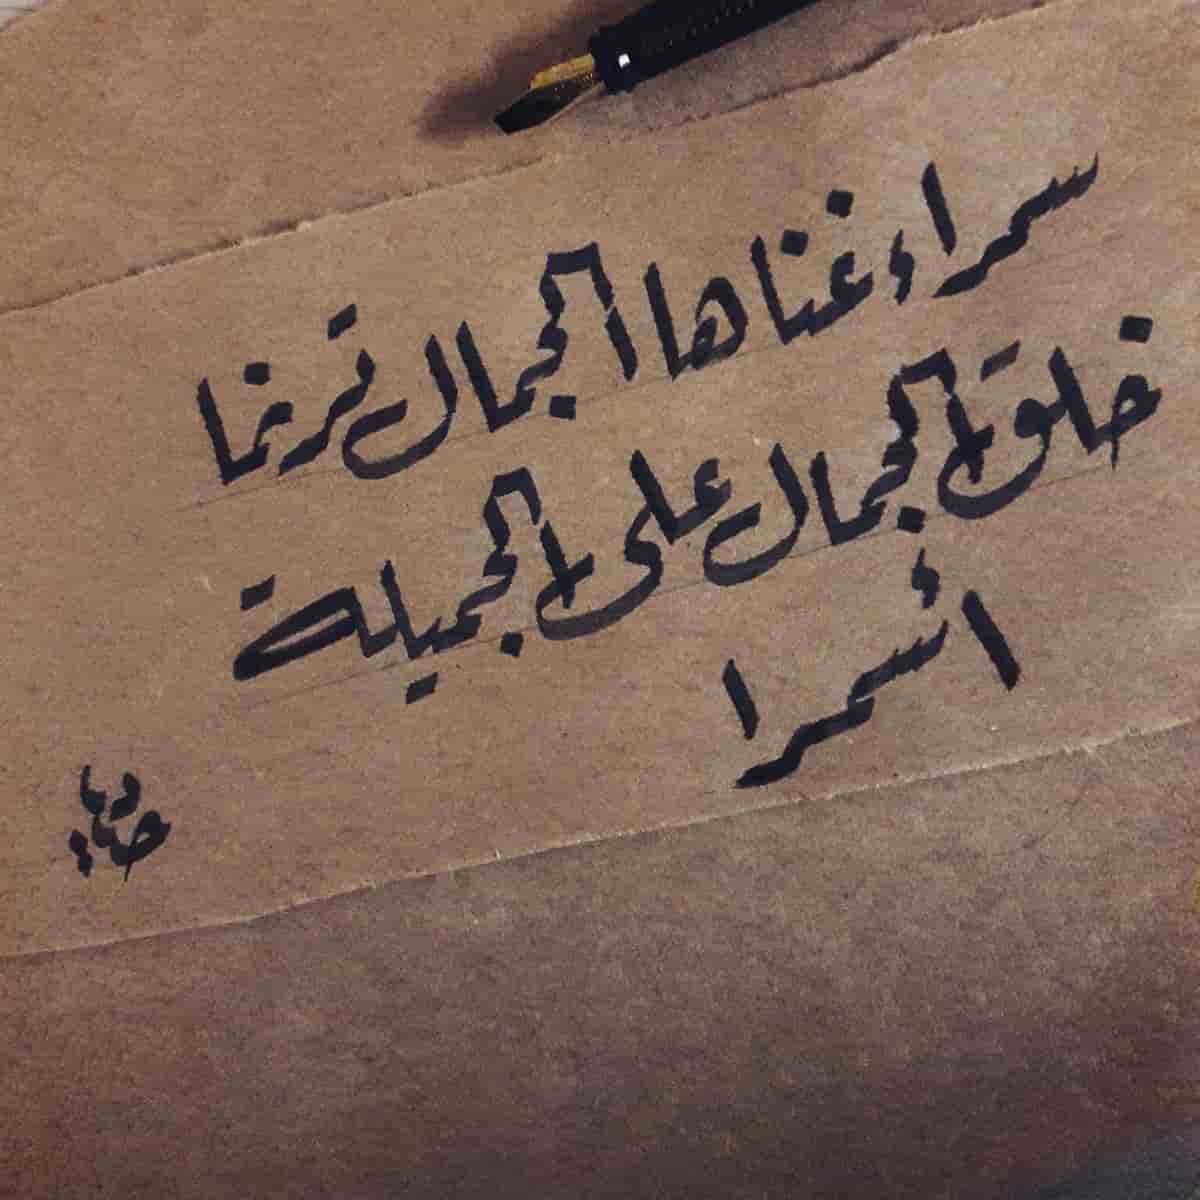 سمراء غناها الجمال ترنما
خلق الجمال على الجميلة
أسمرا